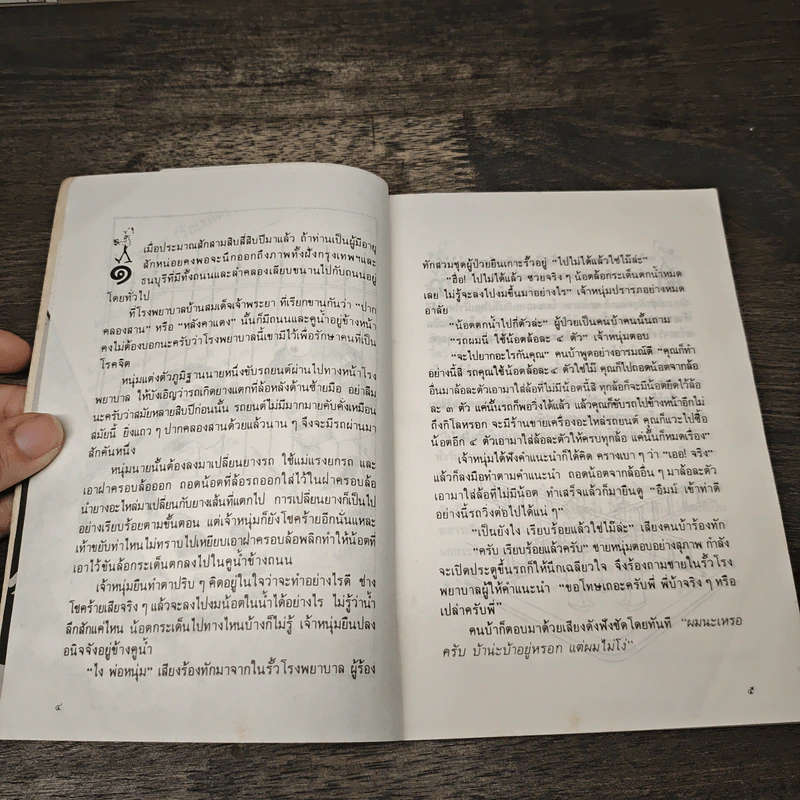 ๑
เมื่อประมาณสักสามสิบสี่สิบปีมาแล้ว ถ้าท่านเป็นผู้มีอายุ
สักหน่อยคงพอจะนึกออกถึงภาพทั้งฝั่งกรุงเทพฯและ
ธนบุรีที่มีทั้งถนนและลำคลองเลียบขนานไปกับถนนอยู่
โดยทั่วไป
ที่โรงพยาบาลบ้านสมเด็จเจ้าพระยา ที่เรียกขานกันว่า “ปาก
คลองสาน” หรือ “หลังคาแดง” นั้นก็มีถนนและคูน้ำอยู่ข้างหน้า
คงไม่ต้องบอกนะครับว่าโรงพยาบาลนี้เขามีไว้เพื่อรักษาคนที่เป็น
โรคจิต
หนุ่มแต่งตัวภูมิฐานนายหนึ่งขับรถยนต์ผ่านไปทางหน้าโรง
พยาบาล ให้บังเอิญว่ารถเกิดยางแตกที่ล้อหลังด้านซ้ายมือ อย่าลืม
นะครับว่าสมัยหลายสิบปีก่อนนั้น รถยนต์ไม่มีมากมายคับคั่งเหมือน
สมัยนี้ ยิ่งแถว ๆ ปากคลองสานด้วยแล้วนาน ๆ จึงจะมีรถผ่านมา
สักคันหนึ่ง
หนุ่มนายนั้นต้องลงมาเปลี่ยนยางรถ ใช้แม่แรงยกรถ และ
เอาฝาครอบล้อออก ถอดน๊อตที่ล้อรถออกใส่ไว้ในฝาครอบล้อ
นำยางอะไหล่มาเปลี่ยนกับยางเส้นที่แตกไป การเปลี่ยนยางก็เป็นไป
อย่างเรียบร้อยตามขั้นตอน แต่เจ้าหนุ่มก็ยังโชคร้ายอีกนั่นแหละ
เท้าขยับท่าไหนไม่ทราบไปเหยียบเอาฝาครอบล้อพลิกทำให้น๊อตที่
เอาไว้ขันล้อกระเด็นตกลงไปในคูน้ำข้างถนน
เจ้าหนุ่มยืนทำตาปริบ ๆ คิดอยู่ในใจว่าจะทำอย่างไรดี ช่าง
โชคร้ายเสียจริง ๆ แล้วจะลงไปงมน๊อตในน้ำได้อย่างไร ไม่รู้ว่าน้ำ
ลึกสักแค่ไหน น๊อตกระเด็นไปทางไหนบ้างก็ไม่รู้ เจ้าหนุ่มยืนปลง
อนิจจังอยู่ข้างคูน้ำ
“ไง พ่อหนุ่ม” เสียงร้องทักมาจากในรั้วโรงพยาบาล ผู้ร้อง
๔
ทักสวมชุดผู้ป่วยยืนเกาะรั้วอยู่ “ไปไม่ได้แล้วใช่ไม๊ล่ะ”
“ฮื่อ! ไปไม่ได้แล้ว ซวยจริง ๆ น๊อตล้อกระเด็นตกน้ำหมด
เลย ไม่รู้จะลงไปงมขึ้นมาอย่างไร” เจ้าหนุ่มปรารภอย่างหมด
อาลัย
“น๊อตตกน้ำไปกี่ตัวล่ะ” ผู้ป่วยเป็นคนบ้าคนนั้นถาม
“รถผมนี่ ใช้น๊อตล้อละ ๔ ตัว” เจ้าหนุ่มตอบ
“จะไปยากอะไรกันคุณ” คนบ้าพูดอย่างอารมณ์ดี “คุณก็ทำ
อย่างนี้สิ รถคุณใช้น๊อตล้อละ ๔ ตัวใช่ไม๊ คุณก็ไปถอดน๊อตจากล้อ
อื่นมาล้อละตัวเอามาใส่ล้อที่ไม่มีน๊อตนี้สิ ทุกล้อก็จะมีน๊อตยึดไว้ล้อ
ละ ๓ ตัว แค่นั้นรถก็พอวิ่งได้แล้ว แล้วคุณก็ขับรถไปข้างหน้าอีกไม่
ถึงกิโลหรอก จะมีร้านขายเครื่องอะไหล่รถยนต์ คุณก็แวะไปซื้อ
น๊อตอีก ๔ ตัวเอามาใส่ล้อละตัวให้ครบทุกล้อ แค่นั้นก็หมดเรื่อง”
เจ้าหนุ่มได้ฟังคำแนะนำก็ได้คิด ครางเบา ๆ ว่า “เออ! จริง”
แล้วก็ลงมือทำตามคำแนะนำ ถอดน๊อตจากล้ออื่น ๆ มาล้อละตัว
เอามาใส่ล้อที่ไม่มีน๊อต ทำเสร็จแล้วก็มายืนดู “อืมม์ เข้าท่าดี
อย่างนี้รถวิ่งต่อไปได้แน่ ๆ”
“เป็นยังไง เรียบร้อยแล้วใช่ไม๊ล่ะ” เสียงคนบ้าร้องทัก
“ครับ เรียบร้อยแล้วครับ” ชายหนุ่มตอบอย่างสุภาพ กำลัง
จะเปิดประตูขึ้นรถก็ให้นึกเฉลียวใจ จึงร้องถามชายในรั้วโรง
พยาบาลผู้ให้คำแนะนำ “ขอโทษเถอะครับพี่ พี่บ้าจริง ๆ หรือ
เปล่าครับพี่”
คนบ้าก็ตอบมาด้วยเสียงดังฟังชัดโดยทันที “ผมนะเหรอ
ครับ บ้าน่ะบ้าอยู่หรอก แต่ผมไม่โง่”
๕